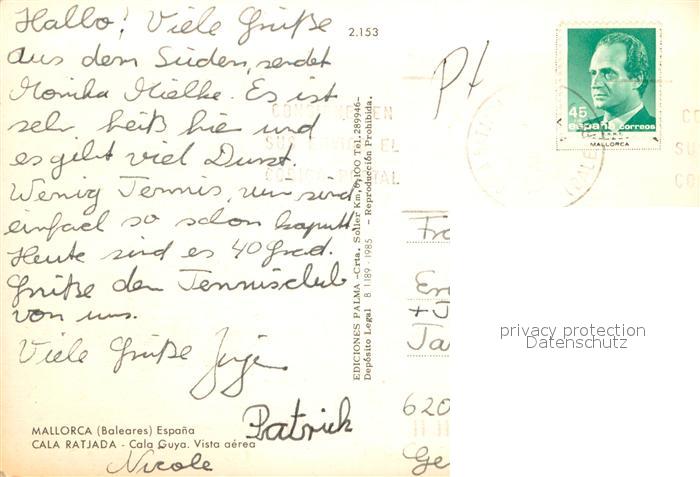 Hallo! Viele Grüße
aus dem Süden, sendet
Monika Mielke. Es ist
sehr heiß hier und
es gibt viel Durst.
Wenig Tennis, wir sind
einfach so schon kaputt.
Heute sind es 40 Grad.
Grüße den Tennisclub
von uns.
Viele Grüße
Patrick
Nicole
MALLORCA (Baleares) España
CALA RATJADA - Cala Guya. Vista aérea
2.153
EDICIONES PALMA -Crta. Soller Km,6,100 Tel.289946-
Depósito Legal B 1189 - 1985 - Reproducción Prohibida.
CONSIGNE EN
SUS ENVIOS EL
CODIGO POSTAL
45
españa correos
MALLORCA
CO
SU
CO
Fr
+J
Ta
620
Ge
privacy protection
Datenschutz